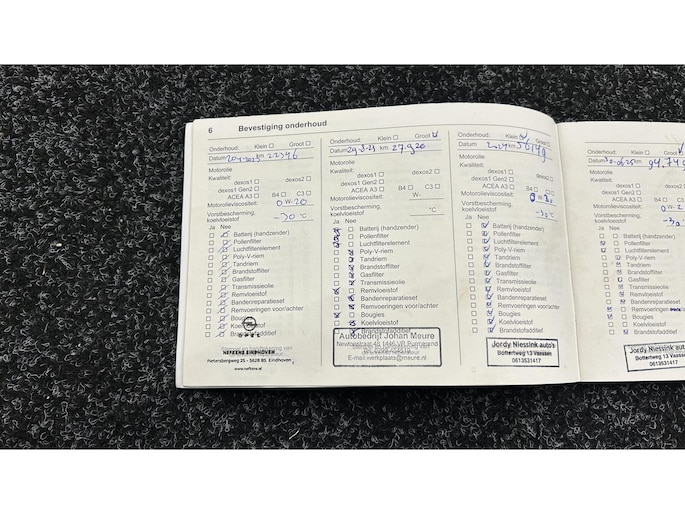 6 Bevestiging onderhoud
Onderhoud: Klein Groot
Datum km 22346
Motorolie
Kwaliteit:
dexos1 dexos2
dexos1 Gen2
ACEA A3 B4 C3
Motorolieviscositeit: 0 W-20
Vorstbescherming,
koelvloeistof -30 °C
Ja Nee
Batterij (handzender)
Pollenfilter
Luchtfilterelement
Poly-V-riem
Tandriem
Brandstoffilter
Gasfilter
Transmissieolie
Remvloeistof
Bandenreparatieset
Remvoeringen voor/achter
Bougies
Koelvloeistof
Brandstofadditief
OPEL
NEFKENS EINDHOVEN
Pietersbergweg 25 - 5628 BS. Eindhoven
www.nefkens.nl
Onderhoud: Klein Groot
Datum 29-3-23 km 27.920
Motorolie
Kwaliteit:
dexos1 dexos2
dexos1 Gen2
ACEA A3 B4 C3
Motorolieviscositeit: W-
Vorstbescherming,
koelvloeistof °C
Ja Nee
Batterij (handzender)
Pollenfilter
Luchtfilterelement
Poly-V-riem
Tandriem
Brandstoffilter
Gasfilter
Transmissieolie
Remvloeistof
Bandenreparatieset
Remvoeringen voor/achter
Bougies
Koelvloeistof
Brandstofadditief
Autobedrijf Johan Meure
E-mail:werkplaats@meure.nl
Onderhoud: Klein Groot
Datum km
Motorolie
Kwaliteit:
dexos1 dexos2
dexos1 Gen2
ACEA A3 B4 C3
Motorolieviscositeit: 0 W-
Vorstbescherming,
koelvloeistof -30 °C
Ja Nee
Batterij (handzender)
Pollenfilter
Luchtfilterelement
Poly-V-riem
Tandriem
Brandstoffilter
Gasfilter
Transmissieolie
Remvloeistof
Bandenreparatieset
Remvoeringen voor/achter
Bougies
Koelvloeistof
Brandstofadditief
Jordy Niessink auto's
Botterweg 13 Vaassen
0613531417
Onderhoud: Klein Groot
Datum km
Motorolie
Kwaliteit:
dexos1
dexos1 Gen2
ACEA A3 B4
Motorolieviscositeit: 0 W-2
Vorstbescherming,
koelvloeistof
Ja Nee
Batterij (handzender)
Pollenfilter
Luchtfilterelement
Poly-V-riem
Tandriem
Brandstoffilter
Gasfilter
Transmissieolie
Remvloeistof
Bandenreparatieset
Remvoeringen
Bougies
Koelvloeistof
Brandstofadditief
Jordy Niessink auto's
Botterweg 13 Vaassen
0613531417